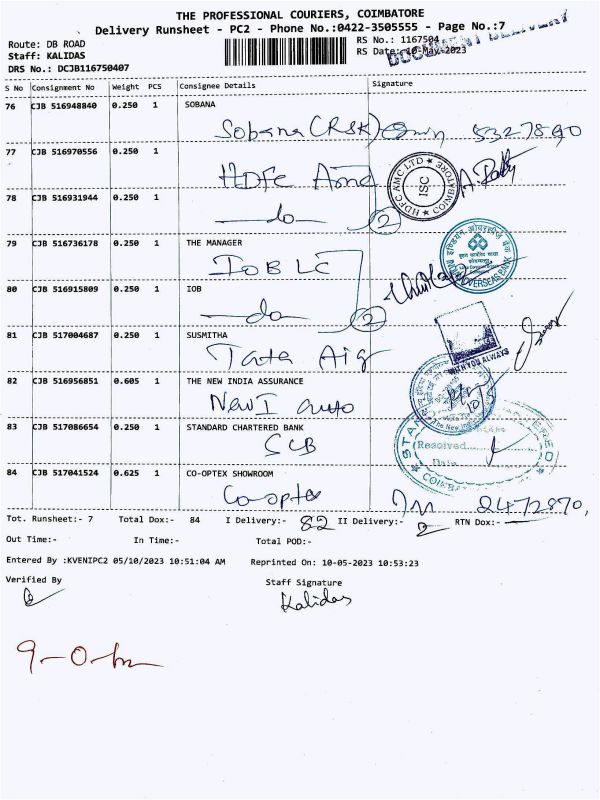 THE PROFESSIONAL COURIERS, COIMBATORE
Delivery Runsheet - PC2 - Phone No.:0422-3505555 - Page No.:7
Route: DB ROAD
Staff: KALIDAS
DRS No.: DCJB116750407
RS No.: 1167504
RS Date: 10-May-2023
DOCUMENT DELIVERY
S No Consignment No Weight PCS Consignee Details Signature
76 CJB 516948840 0.250 1 SOBANA
Sobana (RSK) 5327890
77 CJB 516970556 0.250 1
HDFC Amc
HDFC AMC LTD ★ COIMBATORE ★
ISC
78 CJB 516931944 0.250 1
do 2
79 CJB 516736178 0.250 1 THE MANAGER
IOB LC
OVERSEAS BANK
80 CJB 516915809 0.250 1 IOB
do 2
81 CJB 517004687 0.250 1 SUSMITHA
Tata Aig
WITH YOU ALWAYS
82 CJB 516956851 0.605 1 THE NEW INDIA ASSURANCE
NewI auto
83 CJB 517086654 0.250 1 STANDARD CHARTERED BANK
SCB
Received
84 CJB 517041524 0.625 1 CO-OPTEX SHOWROOM
Co-optex 2472870,
Tot. Runsheet:- 7 Total Dox:- 84 I Delivery:- 82 II Delivery:- 2 RTN Dox:-
Out Time:- In Time:- Total POD:-
Entered By :KVENIPC2 05/10/2023 10:51:04 AM Reprinted On: 10-05-2023 10:53:23
Verified By Staff Signature
Kalidas